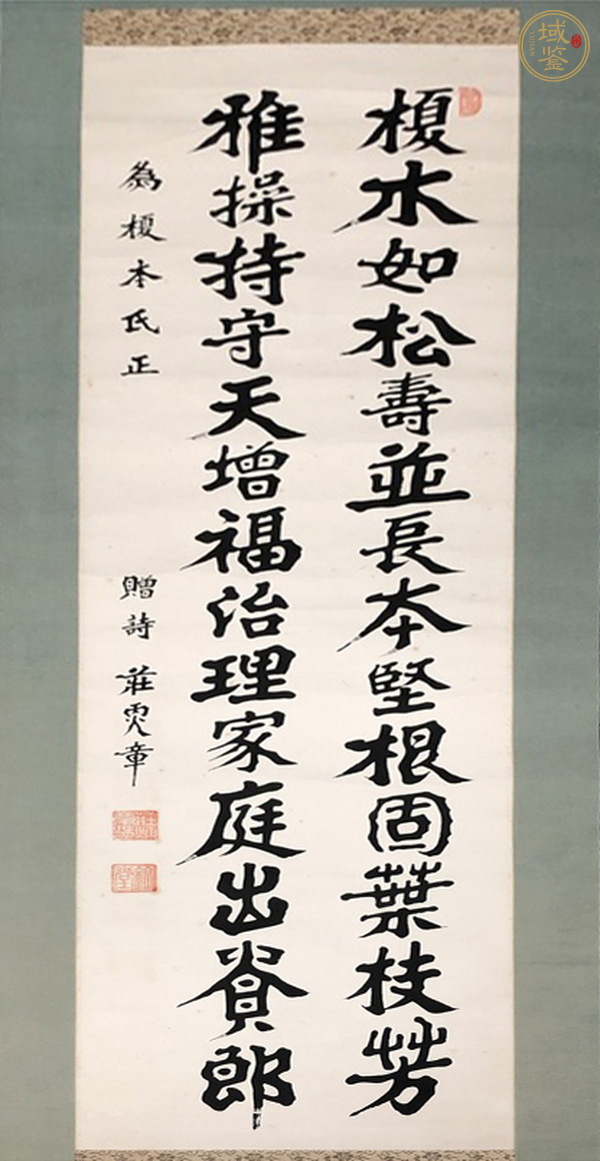 榎木如松壽並長本堅根固葉枝芳
雅操持守天增福治理家庭出貴郎
為榎本氏正
贈詩 莊 章
域鑒
YUJIAN